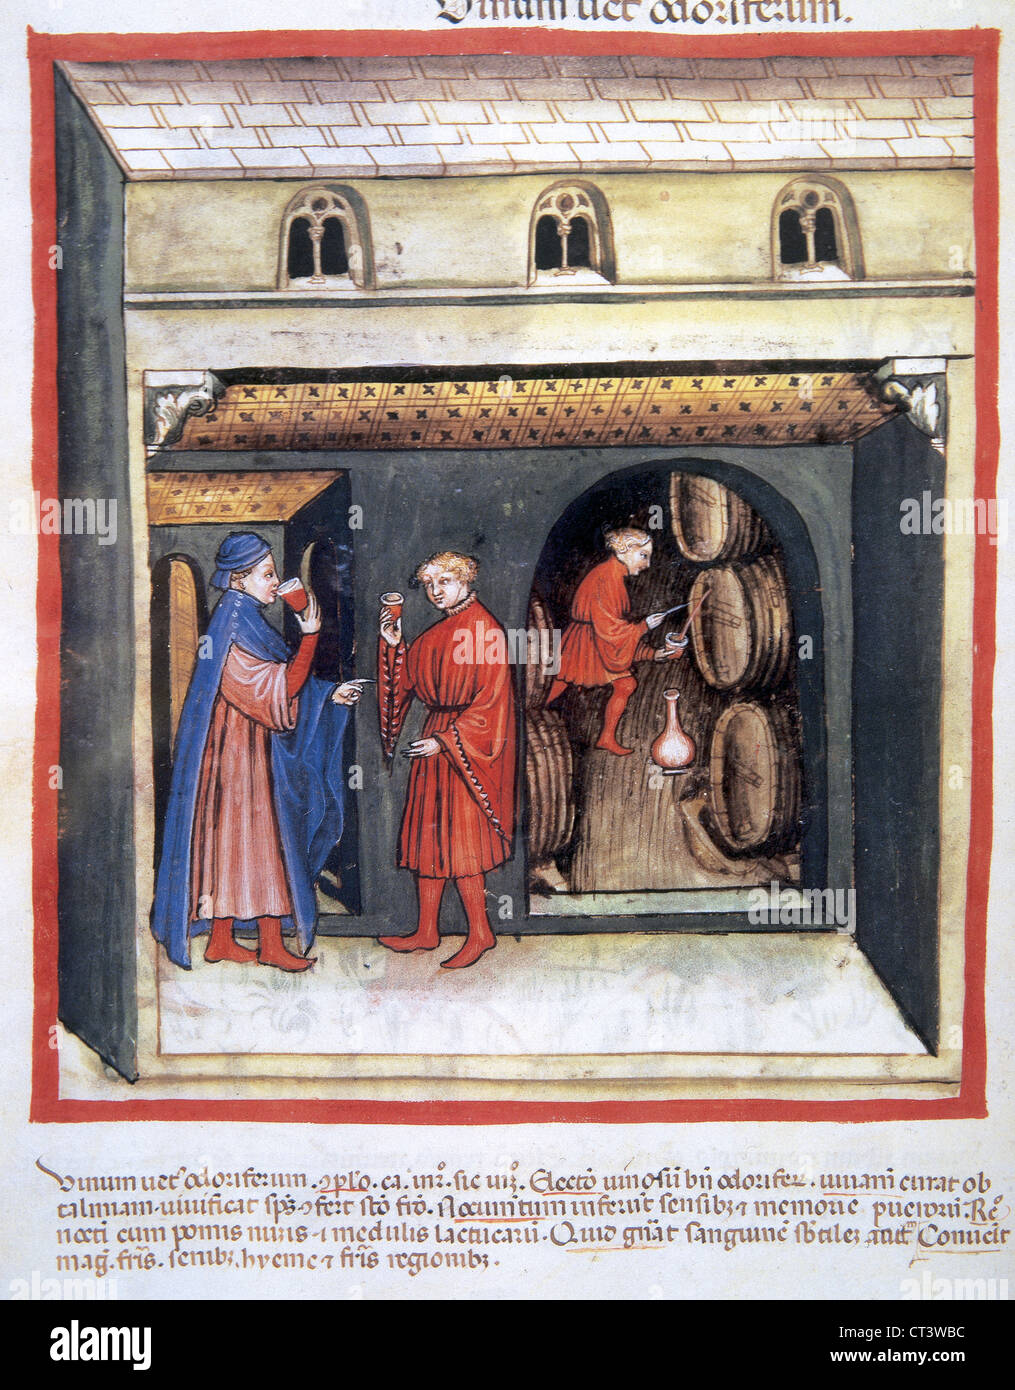 Vinum vet⁹ odoriferum.
Vinum vet⁹ odoriferum. ꝯplo. ca. in 2°. sic. in 2°. Electō vinosū bn̄ odorifeꝝ. iuvam̄ curat ob
talmiam. vivificat sp̄s ꝯfert stō frō. Nocum̄tum inferūt sensibꝫ ⁊ memorie puerorū. Re°
nocti cum pomis muris ⁊ medulis lactucarū. Quid gn̄at sanguinē sb̄tilē acutū Convēit
mag̃ frīs. senibꝫ. hyeme ⁊ frīs regionibꝫ.
alamy
Image ID: CT3WBC
www.alamy.com